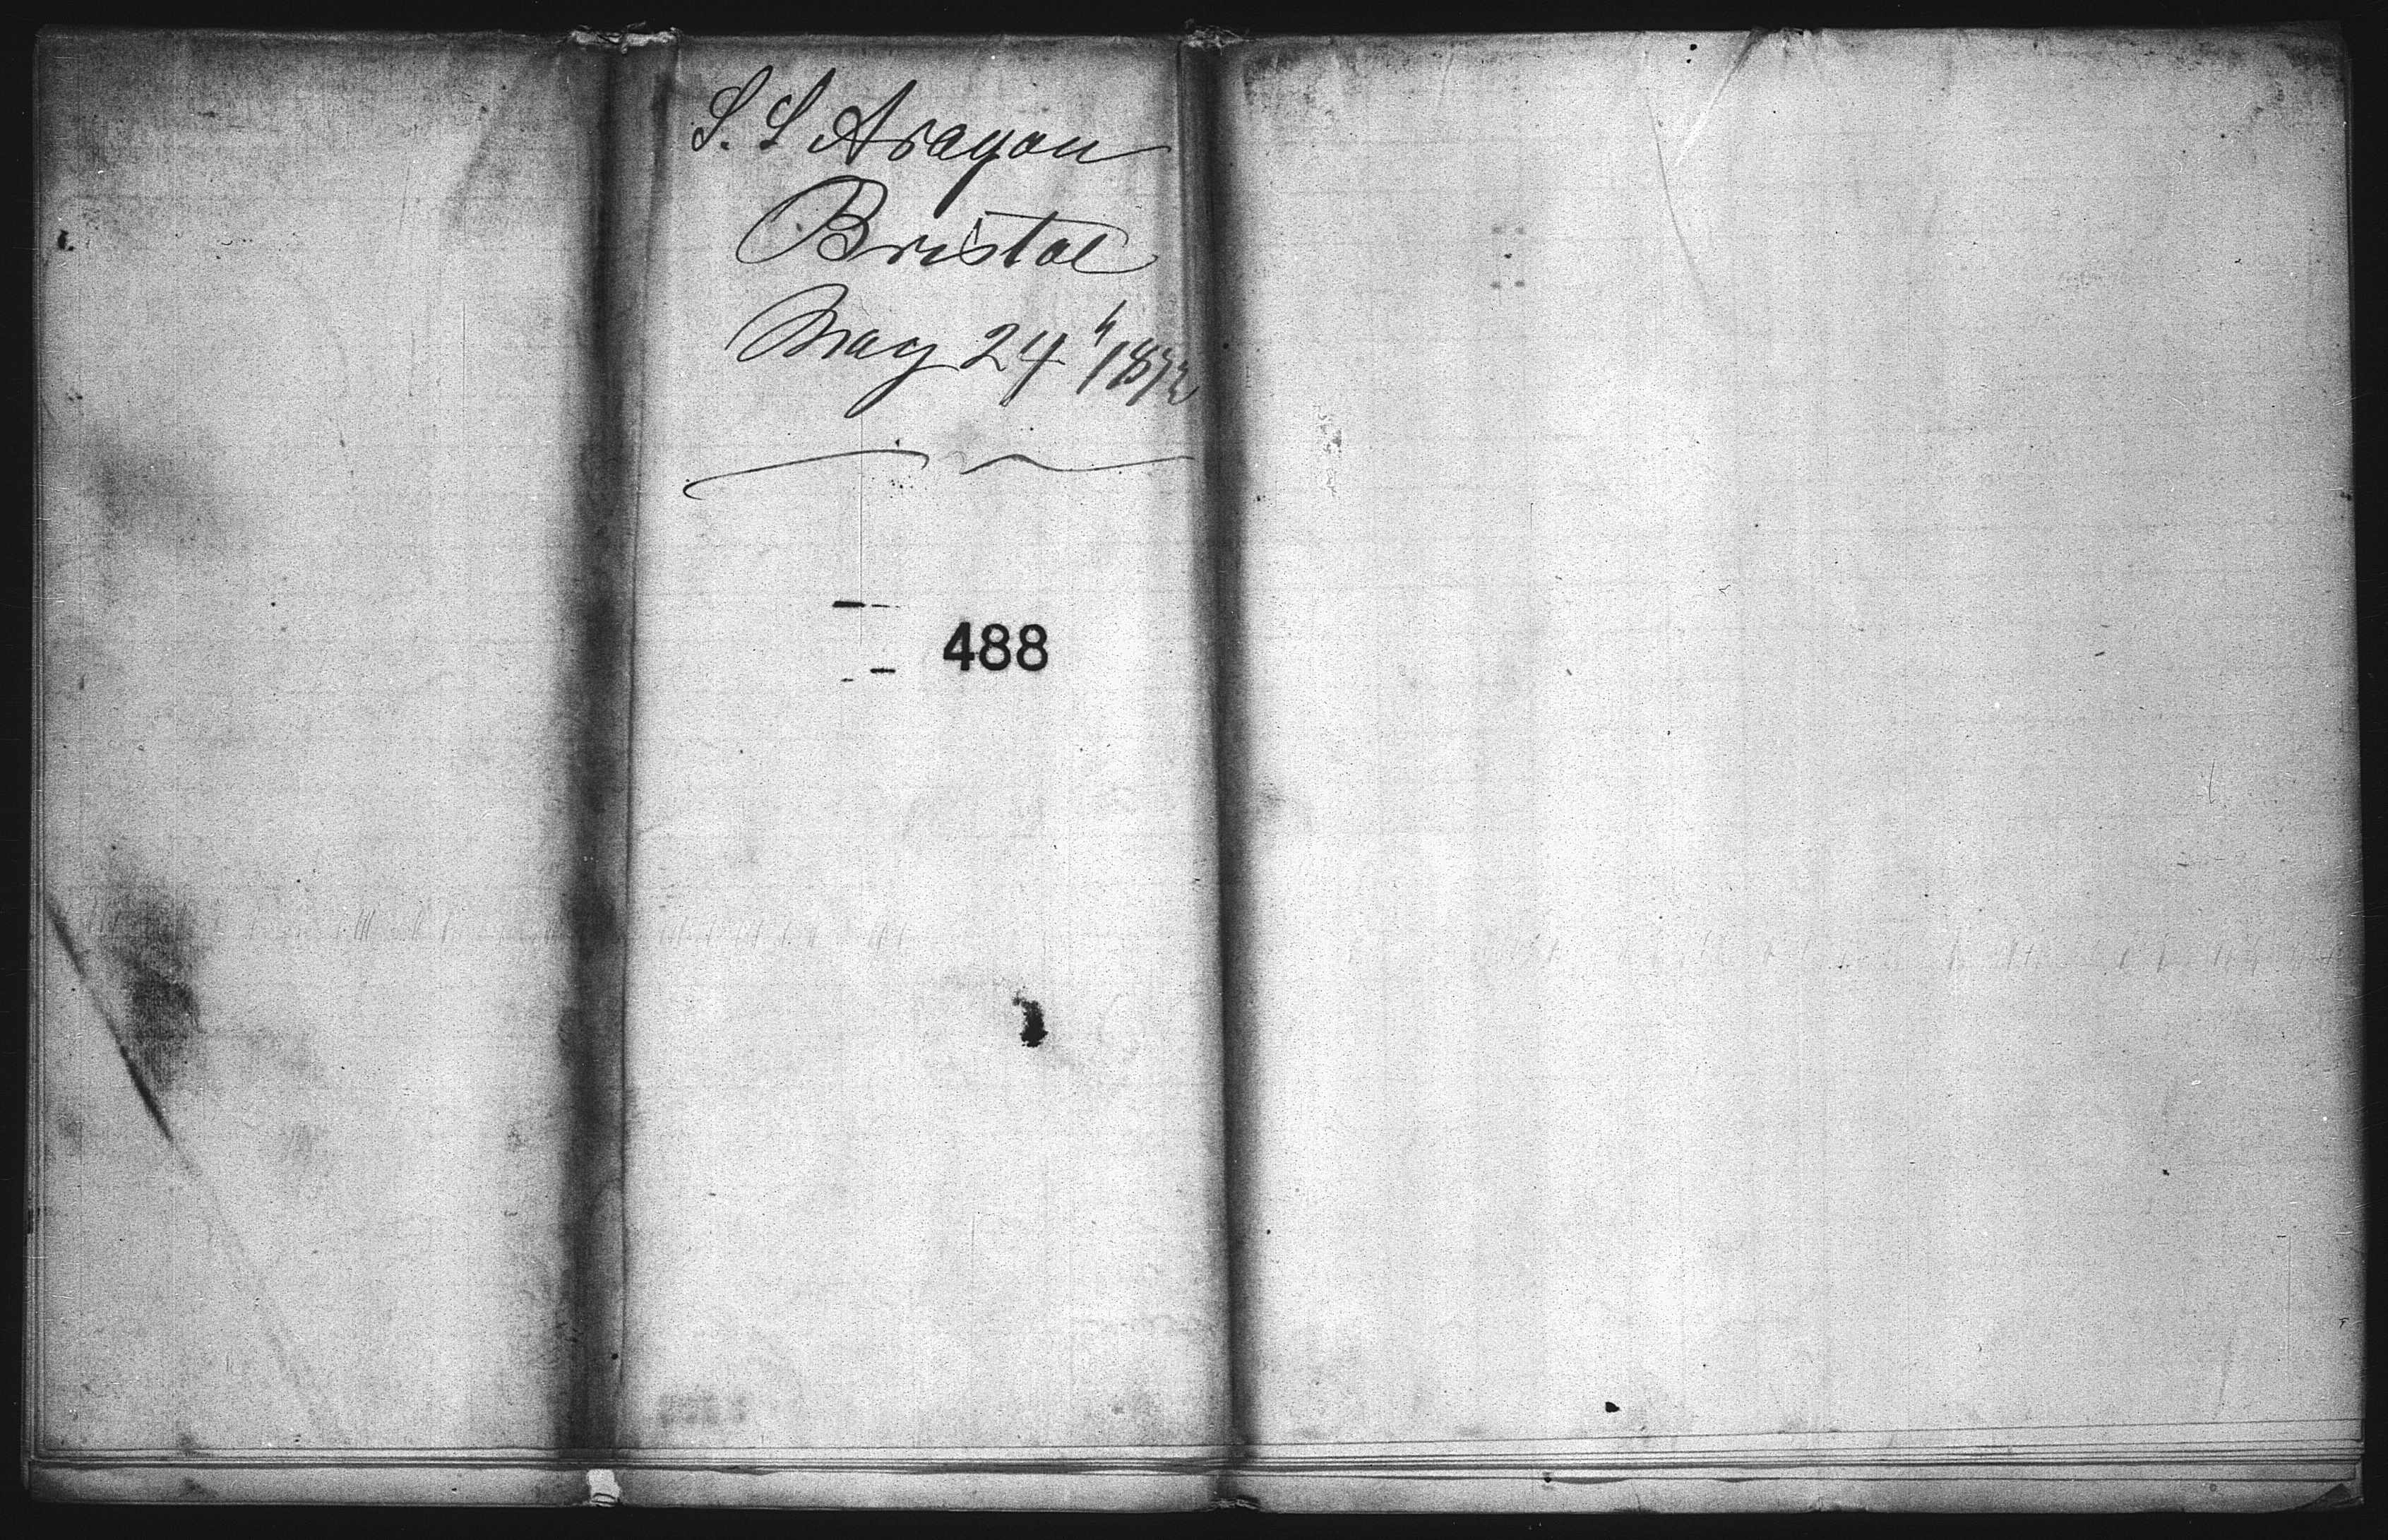 S. S Aragon
Bristol
May 24th 1872
488